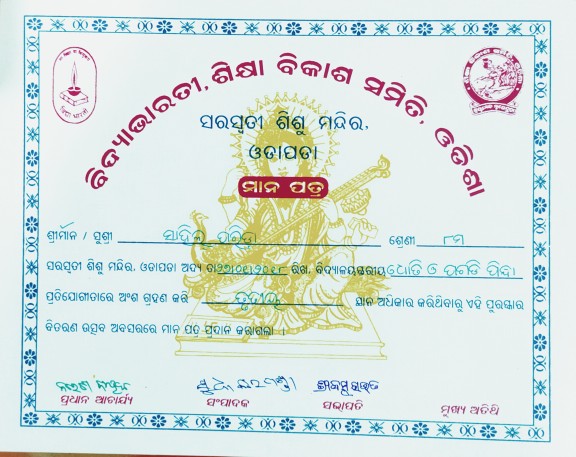 ବିଦ୍ୟାଭାରତୀ, ଶିକ୍ଷା ବିକାଶ ସମିତି, ଓଡ଼ିଶା
ସରସ୍ୱତୀ ଶିଶୁ ମନ୍ଦିର,
ଓଡାପଡା
ମାନ ପତ୍ର
ଶ୍ରୀମାନ / ସୁଶ୍ରୀ ଶ୍ରେଣୀ ୮ମ
ସରସ୍ୱତୀ ଶିଶୁ ମନ୍ଦିର, ଓଡାପଡା ଅଦ୍ୟ ରିଖ, ବିଦ୍ୟାଳୟସ୍ତରୀୟ ଧୋତି ଓ ପଗଡି ପିନ୍ଧା
ପ୍ରତିଯୋଗୀତାରେ ଅଂଶ ଗ୍ରହଣ କରି ତୃତୀୟ ସ୍ଥାନ ଅଧିକାର କରିଥିବାରୁ ଏହି ପୁରସ୍କାର
ବିତରଣ ଉତ୍ସବ ଅବସରରେ ମାନ ପତ୍ର ପ୍ରଦାନ କରାଗଲା ।
ପ୍ରଧାନ ଆଚାର୍ଯ୍ୟ ସଂପାଦକ ସଭାପତି ମୁଖ୍ୟ ଅତିଥି